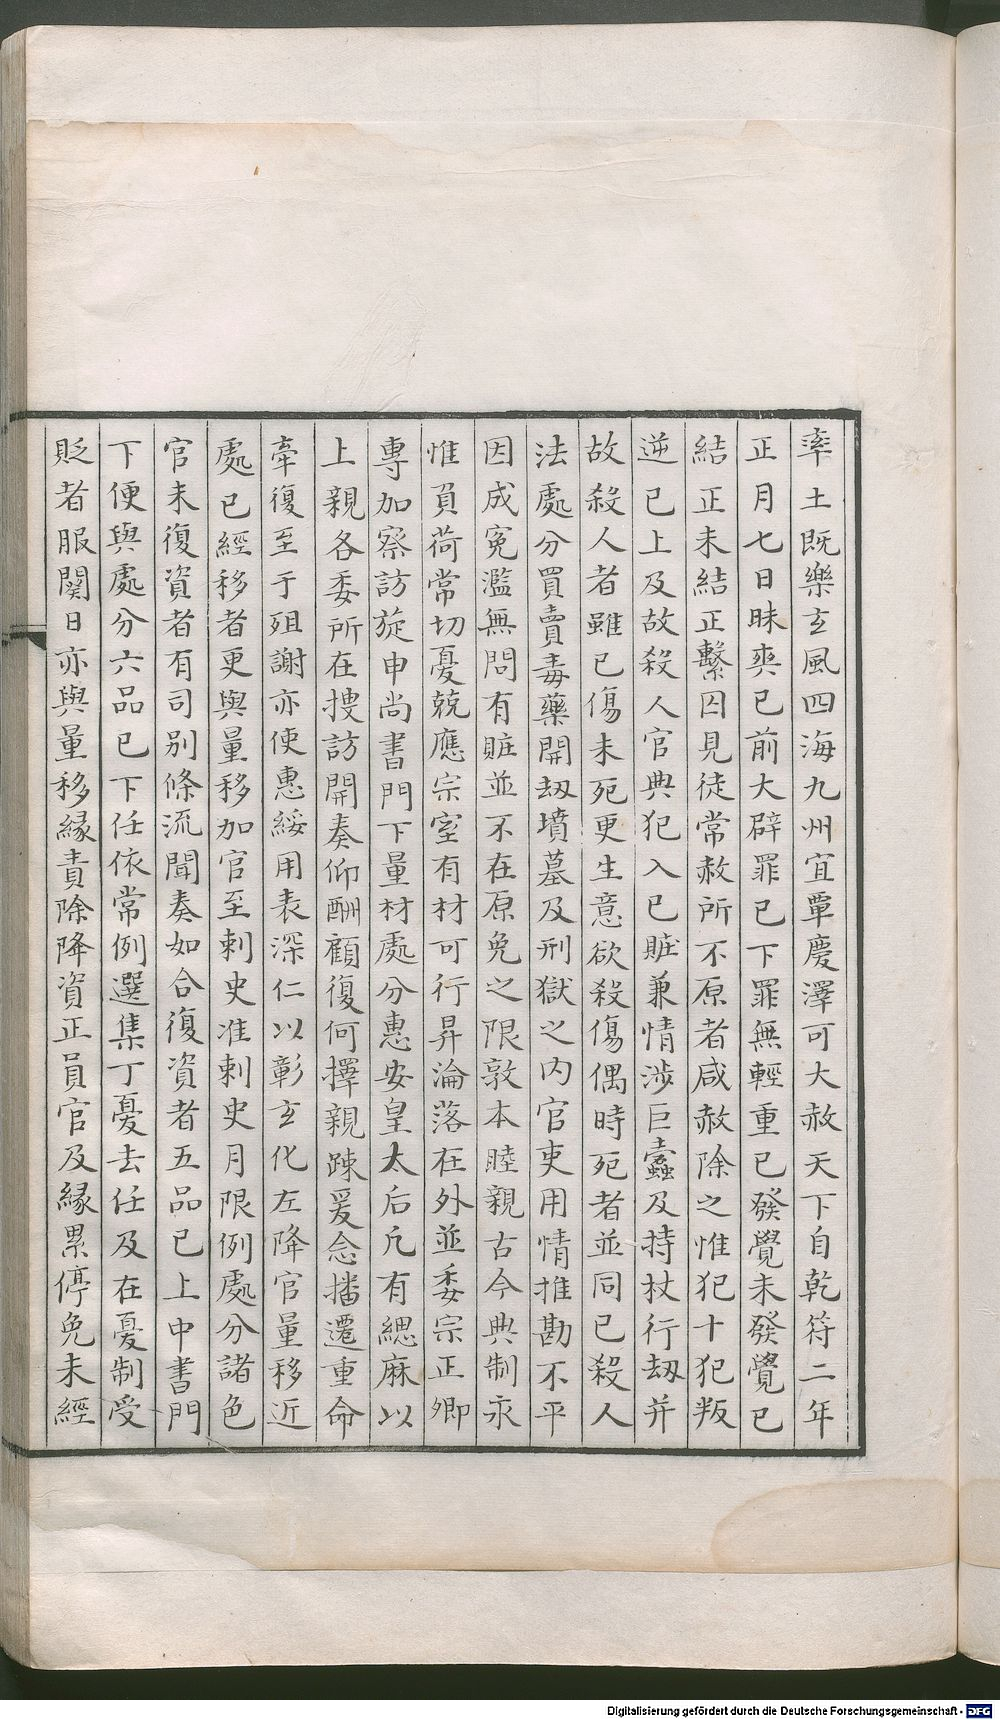 率土既樂玄風四海九州宜覃慶澤可大赦天下自乾符二年
正月七日昧爽已前大辟罪已下罪無輕重已發覺未發覺已
結正未結正繫囚見徒常赦所不原者咸赦除之惟犯十犯叛
逆已上及故殺人官典犯入已贜兼情涉巨蠹及持杖行刼并
故殺人者雖已傷未死更生意欲殺傷偶時死者並同已殺人
法處分買賣毒藥開刼墳墓及刑獄之内官吏用情推勘不平
因成寃濫無問有贜並不在原免之限敦本睦親古今典制永
惟負荷常切憂兢應宗室有材可行昇淪落在外並委宗正卿
專加察訪旋申尚書門下量材處分惠安皇太后凢有緦麻以
上親各委所在搜訪開奏仰酬顧復何擇親踈爰念播遷重命
牽復至于殂謝亦使惠綏用表深仁以彰玄化左降官量移近
處已經移者更與量移加官至刺史准刺史月限例處分諸色
官未復資者有司别條流聞奏如合復資者五品已上中書門
下便與處分六品已下任依常例選集丁憂去任及在憂制受
貶者服闋日亦與量移縁責除降資正員官及縁累停免未經
Digitalisierung gefördert durch die Deutsche Forschungsgemeinschaft - DFG